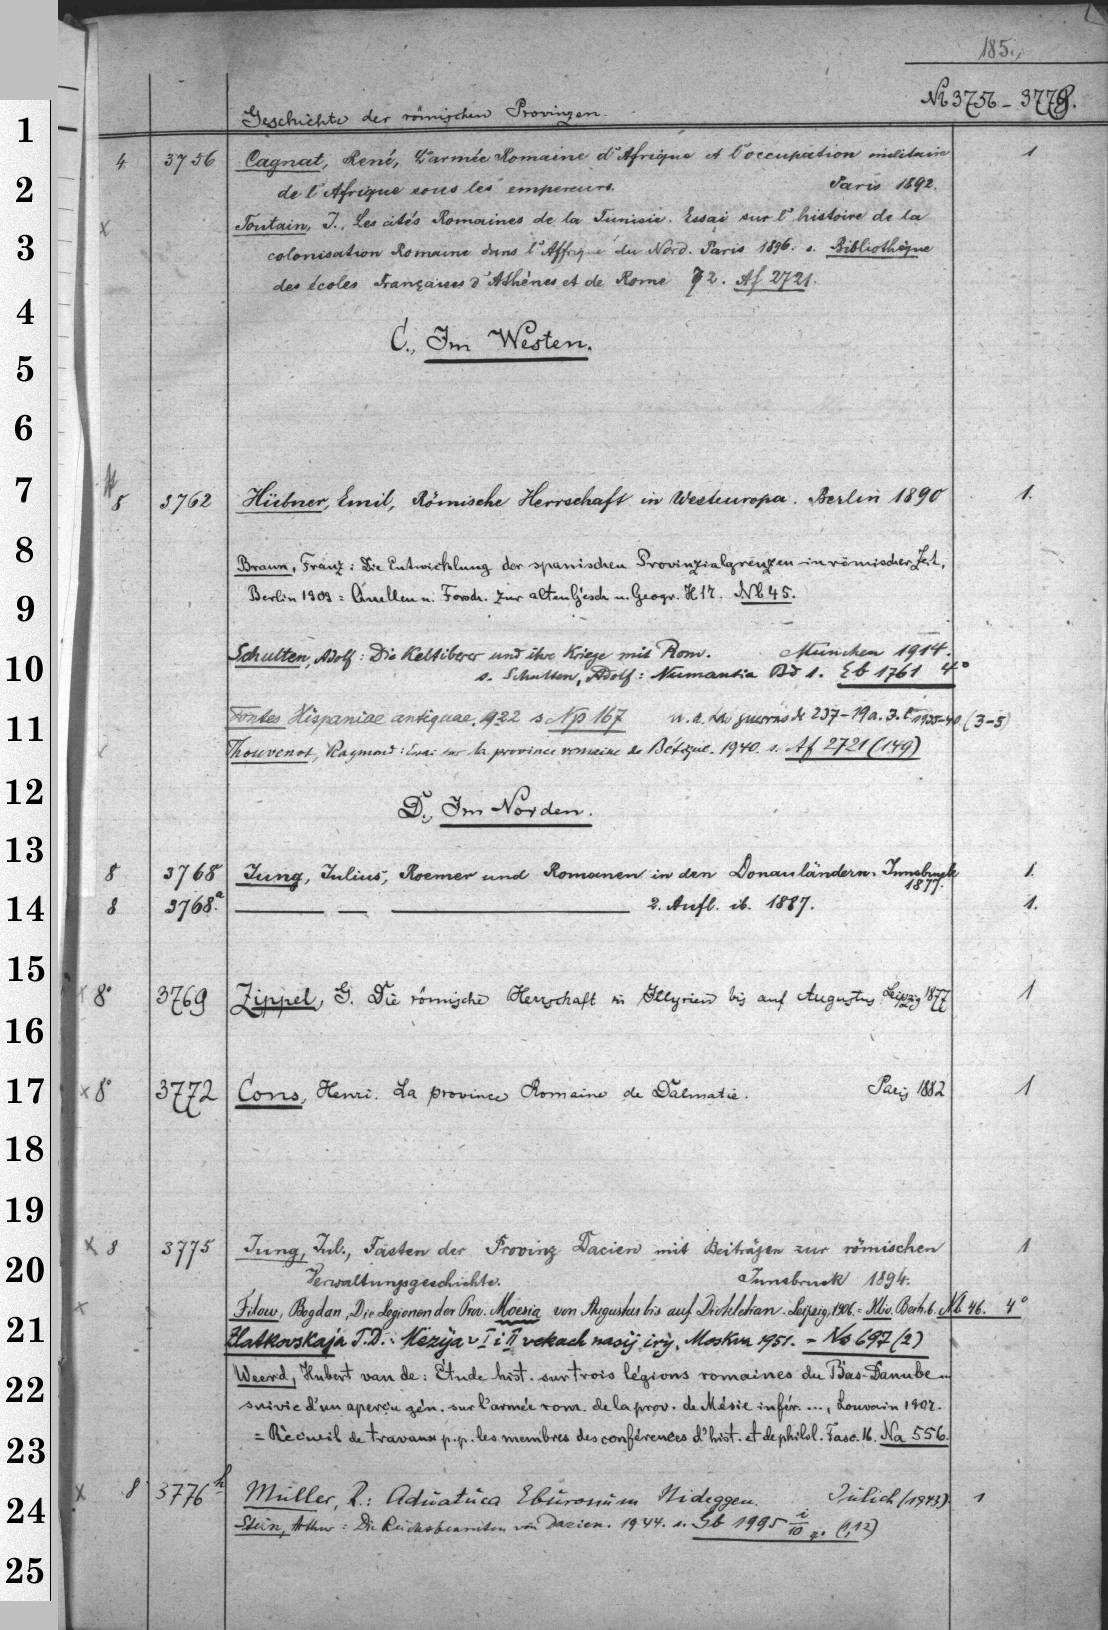 185.
№ 3756 - 3779.
Geschichte der römischen Provinzen.
4 3756 Cagnat, René, L'armée Romaine d'Afrique et l'occupation militaire 1
de l'Afrique sous les empereurs. Paris 1892.
x Toutain, J., Les cités Romaines de la Tunisie. Essai sur l'histoire de la
colonisation Romaine dans l'Affrique du Nord. Paris 1896. s. Bibliothèque
des écoles Françaises d'Athènes et de Rome 72. Af 2721.
C., Im Westen.
8 3762 Hübner, Emil, Römische Herrschaft in Westeuropa. Berlin 1890 1.
Braun, Franz: Die Entwicklung der spanischen Provinzialgrenzen in römischer Zeit.
Berlin 1909 = Quellen u. Forsch. zur alten Gesch. u. Geogr. H 17. Nb 45.
Schulten, Adolf: Die Keltiberer und ihre Kriege mit Rom. München 1914.
s. Schulten, Adolf: Numantia Bd 1. Eb 1761 4°
Fontes Hispaniae antiquae. 1922 s Np 167 u. s. Las guerras de 237-19 a. 3. 1935-40. (3-5)
x Thouvenot, Raymond: Essai sur la province romaine de Bétique. 1940. s. Af 2721 (149)
D., Im Norden.
8 3768 Jung, Julius, Roemer und Romanen in den Donauländern. Innsbruck 1.
1877.
8 3768.a 2. Aufl. ib. 1887. 1.
x 8° 3769 Zippel, G. Die römische Herrschaft in Illyrien bis auf Augustus Leipzig 1877 1
x 8° 3772 Cons, Henri. La province Romaine de Dalmatie. Paris 1882 1
x 8 3775 Jung, Jul., Fasten der Provinz Dacien mit Beiträgen zur römischen 1
Verwaltungsgeschichte. Innsbruck 1894.
x Filow, Bogdan, Die Legionen der Prov. Moesia von Augustus bis auf Diokletian. Leipzig, 1906. = Klio. Beih. 6. Nb 46. 4°
Zlatkovskaja T.D.: Mëzija v I i II vekach nasij iry. Moskva 1951. = No 697 (2)
Weerd, Hubert van de: Étude hist. sur trois légions romaines du Bas-Danube
suivie d'un aperçu gén. sur l'armée rom. de la prov. de Mésie infér. ..., Louvain 1907.
= Récueil de travaux p.p. les membres des conférences d'hist. et de philol. Fasc. 16. Na 556.
x 8° 3776 h Müller, P.: Aduatuca Eburonum Nideggen. Jülich (1943) 1
Stein, Arthur: Die Reichsbeamten von Dazien. 1944. s. Gb 1995 i/10 4° (1,12)
1
2
3
4
5
6
7
8
9
10
11
12
13
14
15
16
17
18
19
20
21
22
23
24
25